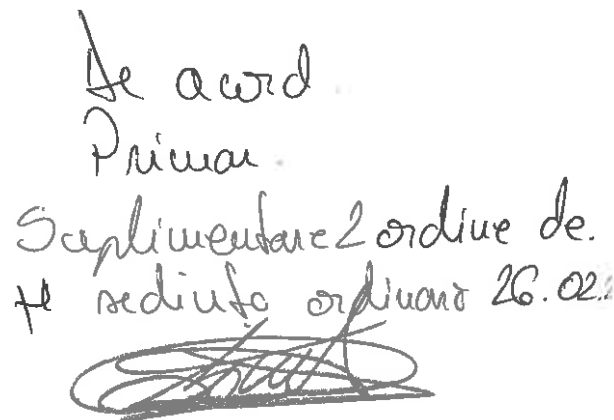 De acord
Primar
Suplimentare 2 ordine de.
ședința ordinară 26.02.